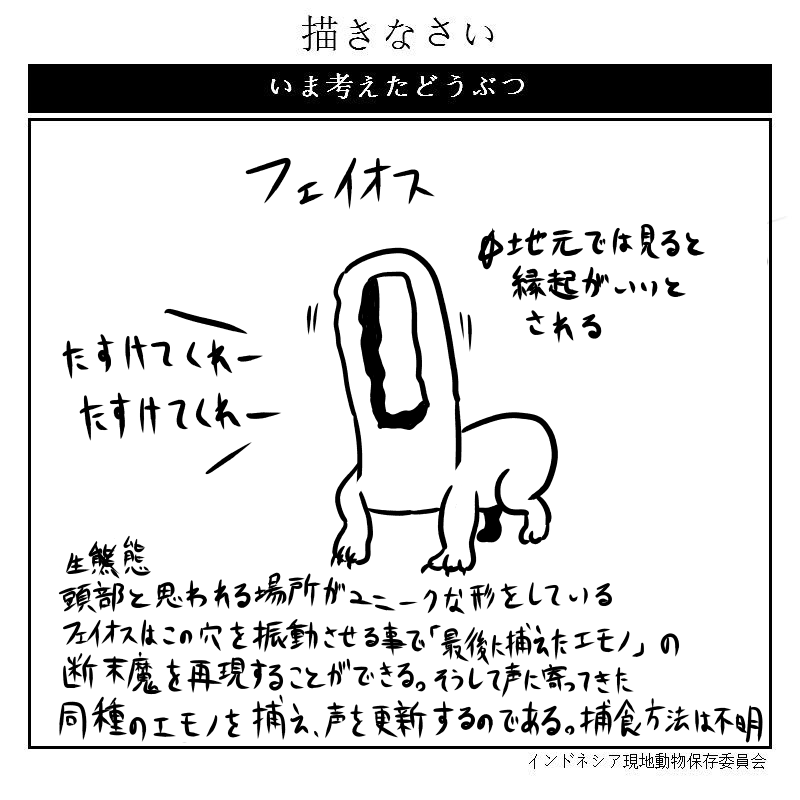 描きなさい
いま考えたどうぶつ
フェイオス
地元では見ると
縁起がいいと
される
たすけてくれー
たすけてくれー
生態
頭部と思われる場所がユニークな形をしている
フェイオスはこの穴を振動させる事で「最後に捕えたエモノ」の
断末魔を再現することができる。そうして声に寄ってきた
同種のエモノを捕え、声を更新するのである。捕食方法は不明
インドネシア現地動物保存委員会